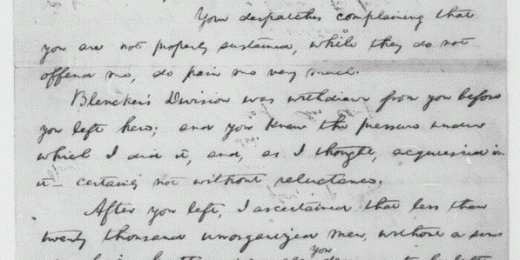 Your despatches complaining that
you are not properly sustained, while they do not
offend me, do pain me very much.
Blencker's Division was withdrawn from you before
you left here; and you knew the pressure under
which I did it, and, as I thought, acquiesced in
it— certainly not without reluctance.
After you left, I ascertained that less than
twenty thousand unorganized men, without a
you